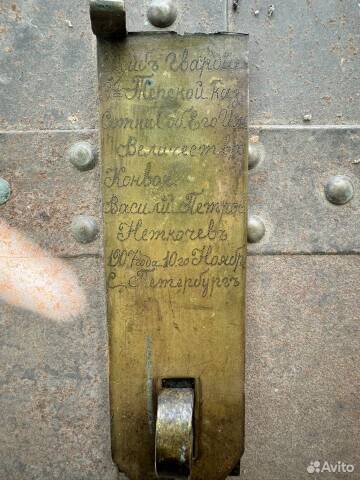 Лейбъ Гвардіи
4й Терской каз
Сотни Соб Его Им
Величеств
Конвоя
Василій Петро
Неткачевъ
1907 года 10 го Ноябр
С. Петербургъ
Avito